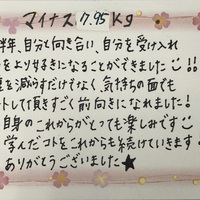 マイナス 7.95kg
半年、自分と向き合い、自分を受け入れ
をより好きになることができました!!
を減らすだけでなく、気持ちの面でも
ートして頂きすごく前向きになれました!
自身のこれからがとっても楽しみです
学んだコトをこれからも続けていきます!
ありがとうございました★